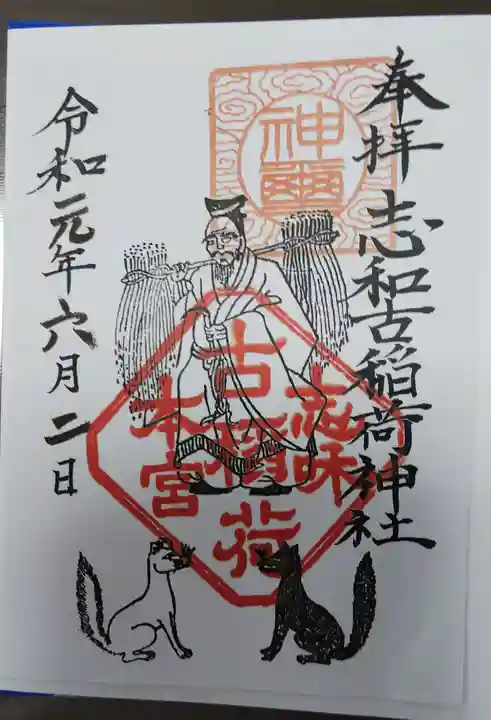 奉拝 志和古稲荷神社
古稲荷
本宮
令和元年六月二日